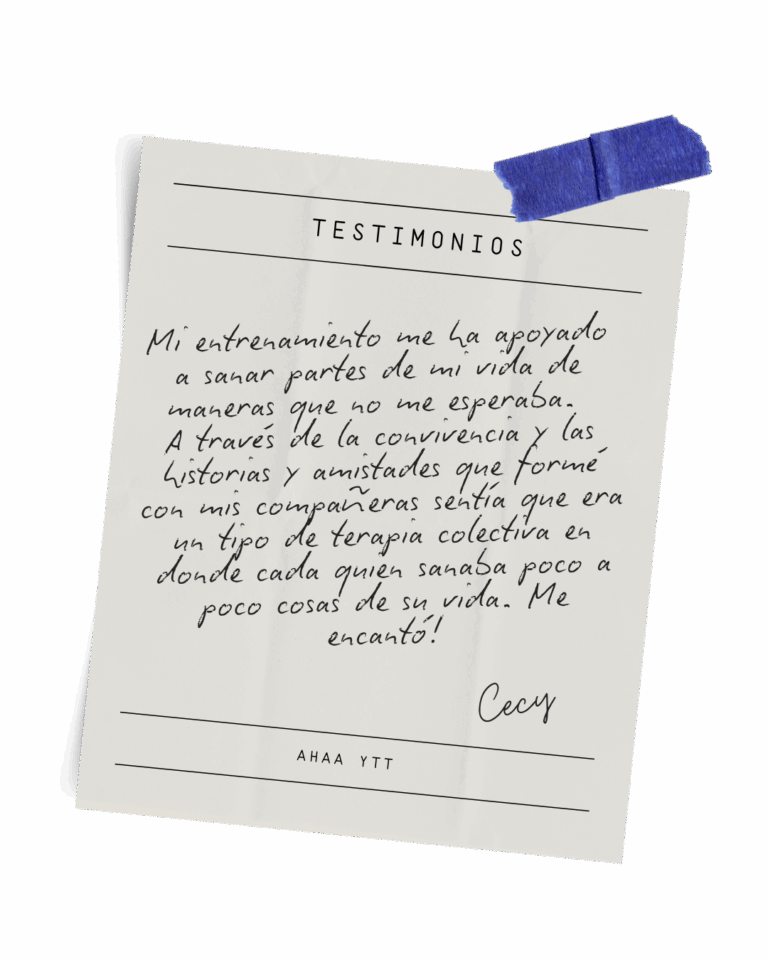 TESTIMONIOS
Mi entrenamiento me ha apoyado
a sanar partes de mi vida de
maneras que no me esperaba.
A través de la convivencia y las
historias y amistades que formé
con mis compañeras sentía que era
un tipo de terapia colectiva en
donde cada quien sanaba poco a
poco cosas de su vida. Me
encantó!
Cecy
AHAA YTT